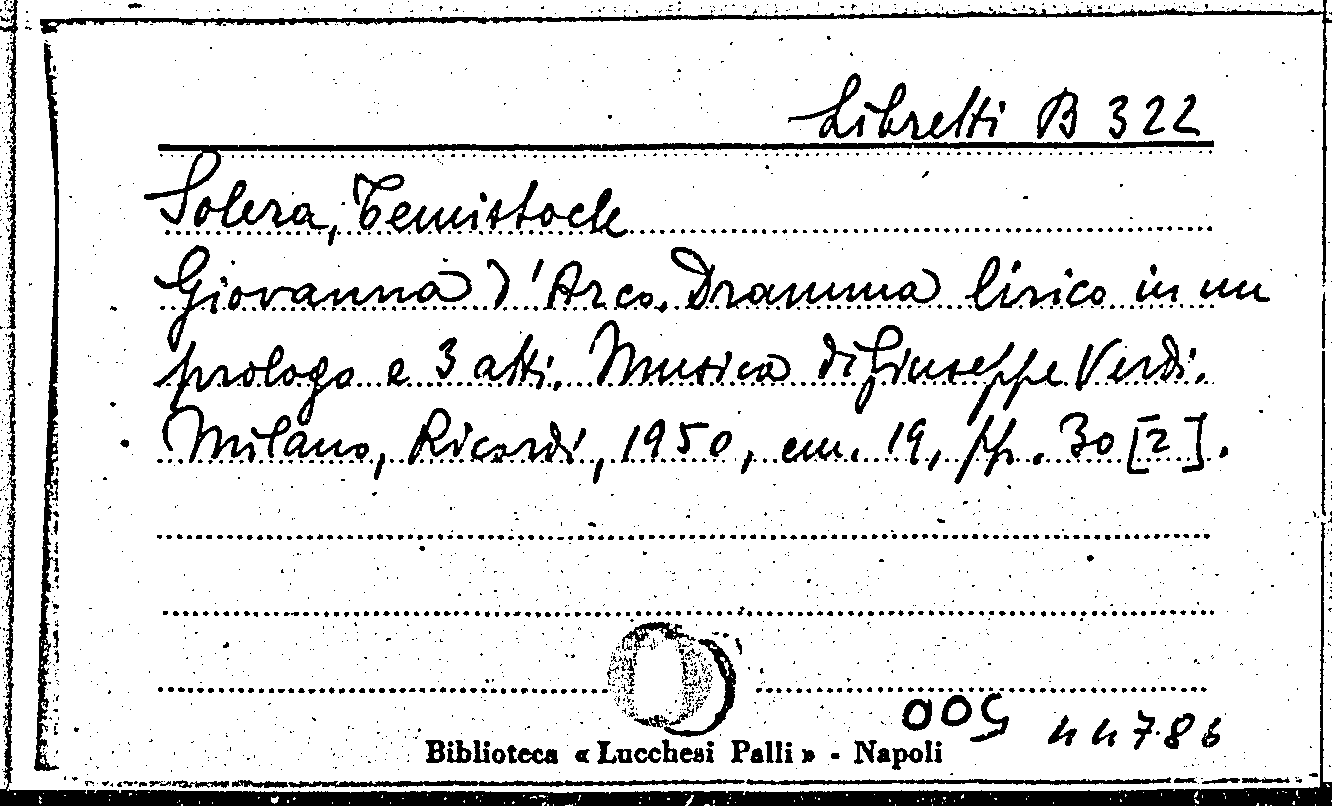 Libretti B 322
Solera, Temistocle
Giovanna d'Arco. Dramma lirico in un
prologo e 3 atti. Musica di Giuseppe Verdi.
Milano, Ricordi, 1950, cm. 19, pp. 30 [2].
005 44786
Biblioteca « Lucchesi Palli » - Napoli